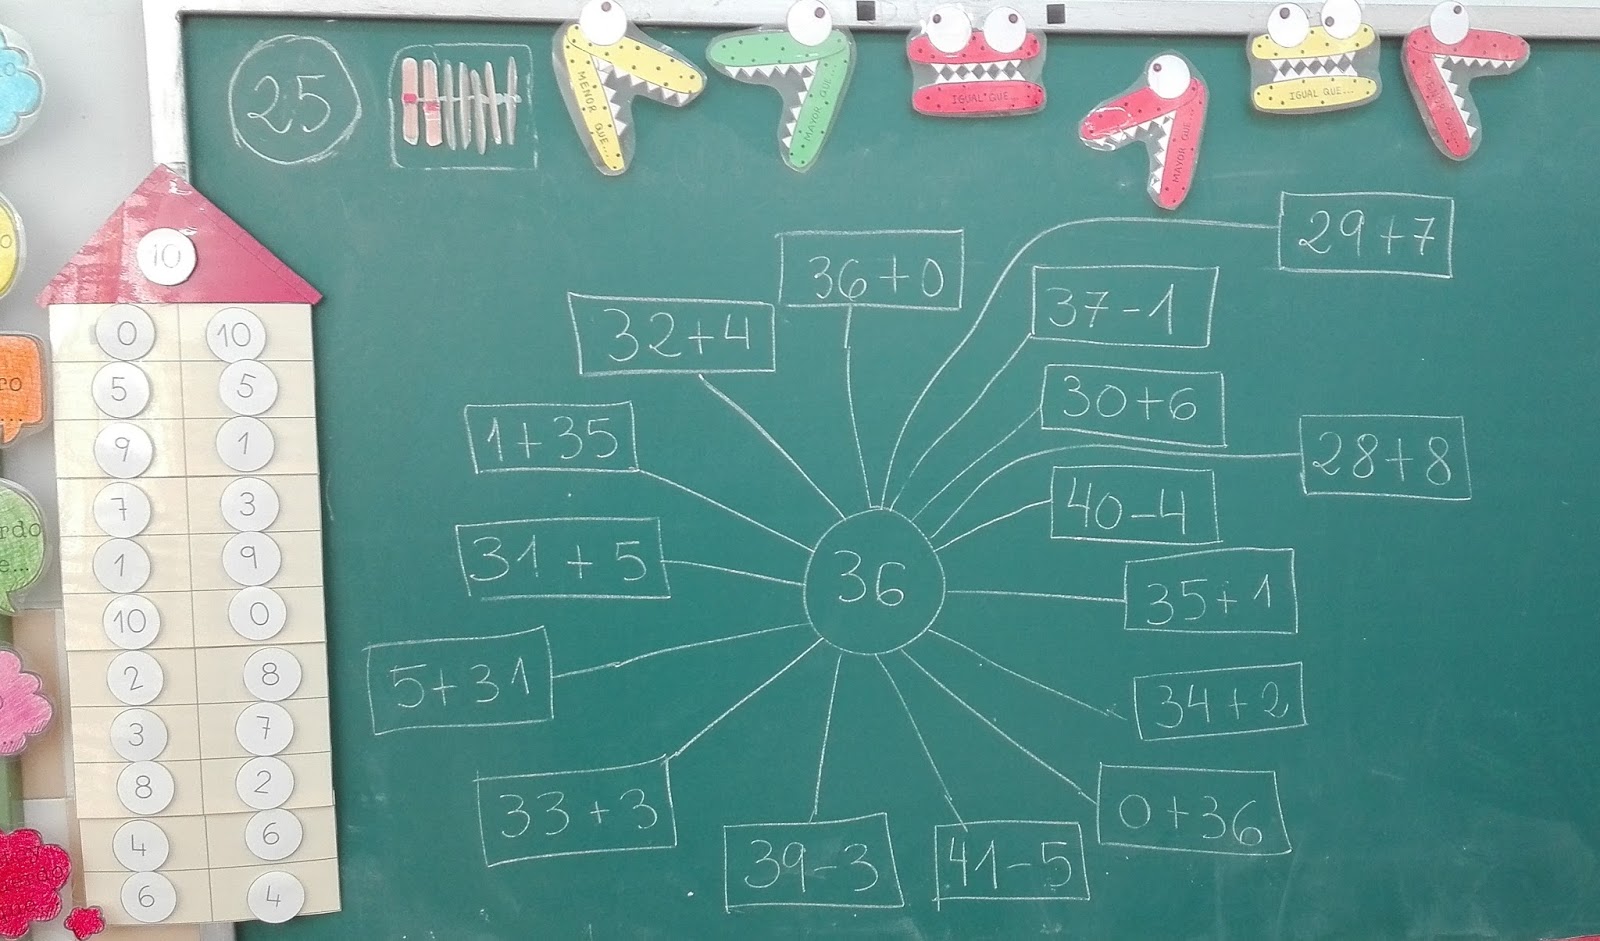 25
MENOR QUE...
MAYOR QUE...
IGUAL QUE...
MAYOR QUE...
IGUAL QUE...
MENOR QUE...
10
0 10
5 5
9 1
7 3
1 9
10 0
2 8
3 7
8 2
4 6
6 4
29+7
36+0
37-1
32+4
30+6
1+35
28+8
40-4
31+5
36
35+1
5+31
34+2
33+3
0+36
39-3
41-5